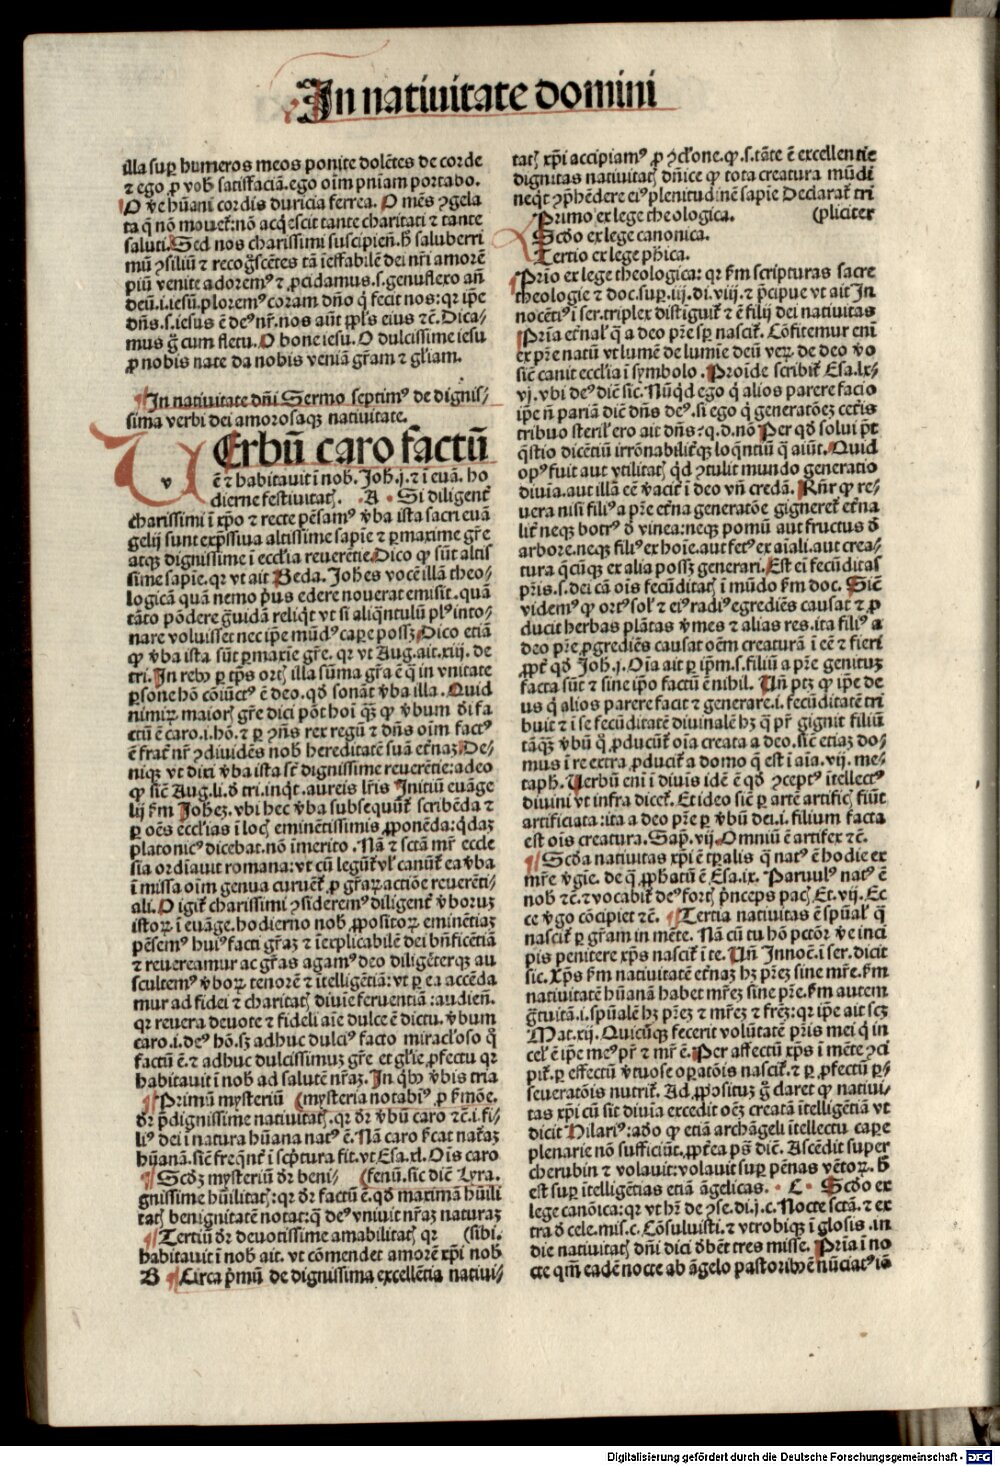 In nativitate domini
illa suꝑ humeros meos ponite dolētes de corde
⁊ ego ꝓ vob̄ satiffaciā.ego oīm pn̄iam portabo.
O v̄e hūani cordis duricia ferrea. O mēs ꝯgela
ta q̄ nō mouet̄:nō acq̄escit tante charitati ⁊ tante
saluti. Sed nos charissimi suscipien̄.h̄ saluberri
mū ꝯsiliū ⁊ recoḡscētes tā īeffabilē dei nr̄i amorē
piū venite adoremꝰ ⁊ ꝓcidamus.s.genuflexo an̄
deū.i.iesū.ploremꝰ coram dn̄o q̄ fecit nos:qr ip̄e
dn̄s.s.iesus ē deꝰ nr̄.nos aūt ppl̄s eius ⁊c̄. Dica⸗
mus ḡ cum fletu. O bone iesu. O dulcissime iesu
ꝓ nobis nate da nobis veniā gr̄am ⁊ gl̄iam.
In nativitate dn̄i Sermo septimꝰ de dignis⸗
sima verbi dei amorosaqꝫ nativitate.
VErbū caro factū
v
ē ⁊ habitauit ī nob̄. Joh̄.j.⁊ ī euā. ho
dierne festivitatꝭ. A Si diligent̄
charissimi ī xp̄o ⁊ recte pēsamꝰ v̄ba ista sacri euā
gelij sunt exp̄ssiva altissime sapie ⁊ ꝑmaxime gr̄e
atqꝫ dignissime ī eccl̄ia reuerētie. Dico ꝙ sūt altis
sime sapie.qr vt ait Beda. Joh̄es vocē illā theo⸗
logicā quā nemo p̄us edere nouerat emisit.quā
tāto pōdere ḡuidā reliq̄t vt si aliq̄ntulū plꝰ into⸗
nare voluisset nec ip̄e mūdꝰ caꝑe possꝫ. Dico etiā
ꝙ v̄ba ista sūt ꝑmaxīe gr̄e. qr vt Aug.ait.xiij. de
tri. In rebꝰ ꝑ tp̄s ortꝭ illa sūma gr̄a ē q̄ in vnitate
ꝑsone hō cōiūctꝰ ē deo.qd̄ sonāt v̄ba illa. Quid
nimiꝝ maiorꝭ gr̄e dici pōt hoī q̄ꝫ ꝙ v̄bum dī fa
ctū ē caro.i.hō.⁊ ꝑ ꝯn̄s rex regū ⁊ dn̄s oīm factꝰ
ē frat̄ nr̄ ꝯdividēs nob̄ hereditatē suā et̄naꝫ. De⸗
niqꝫ vt dixi v̄ba ista sūt dignissime reuerētie:adeo
ꝙ sic̄ Aug.li.d̄ tri.inq̄t.aureis lr̄is Initiū euāge
lij fm̄ Joh̄eꝫ.vbi hec v̄ba subsequūt̄ scribēda ⁊
ꝑ oēs eccl̄ias ī locꝭ eminētissimis ꝓponēda:q̄daꝫ
platonicꝰ dicebat.nō īmerito. Nā ⁊ sctā mr̄ eccle
sia ordīauit romana:vt cū legūt̄ vl̄ canūt̄ ea v̄ba
ī missa oīm genua curuēt̄ ꝓ gr̄aꝝ actiōe reuerēti⸗
ali. O igit̄ charissimi ꝯsideremꝰ diligent̄ v̄boruꝫ
istoꝝ ī euāge.hodierno nob̄ ꝓpositoꝝ eminētiaꝫ
pēsemꝰ huiꝰ facti gr̄aꝫ ⁊ īexplicabilē dei bn̄ficētiā
⁊ revereamur ac gr̄as agamꝰ deo diligēterqꝫ au
scultemꝰ v̄boꝝ tenorē ⁊ ītelligētiā:vt ꝑ ea accēda
mur ad fidei ⁊ charitatꝭ diuīe feruentiā:audien̄.
qr revera devote ⁊ fideli aīe dulce ē dictu. v̄bum
caro.i.deꝰ hō.sꝫ adhuc dulciꝰ facto miracl̄oso q̄
factū ē.⁊ adhuc dulcissimuꝫ gr̄e et gl̄ie ꝓfectu qr
habitauit ī nob̄ ad salutē nr̄aꝫ. In q̄bꝰ v̄bis tria
Primū mysteriū (mysteria notabiꝰ ꝓ ẜmōe.
dr̄ p̄dignissime nativitatꝭ.qr dr̄ v̄bū caro ⁊c̄.i.fi⸗
liꝰ dei ī natura hūana natꝰ ē. Nā caro ẜcat nat̄aꝫ
hūanā.sic̄ freq̄nt̄ ī sc̄ptura fit.vt Esa.xl. Oīs caro
Scd̄ꝫ mysteriū dr̄ beni⸗ (fenū.sic̄ dic̄ Lyra.
gnissime hūilitatꝭ:qr dr̄ factū ē.qd̄ maximā hūili
tatꝭ benignitatē notat:q̄ deꝰ vnivit nr̄aꝫ naturaꝫ
Tertiū dr̄ deuotissime amabilitatꝭ qr (sibi.
habitauit ī nob̄ ait. vt cōmendet amorē xp̄i nob̄
B Circa p̄mū de dignissima excellētia nativi⸗
tatꝭ xp̄i accipiamꝰ ꝓ ꝯcl̄one.ꝙ.s.tāte ē excellentie
dignitas nativitatꝭ dn̄ice ꝙ tota creatura mūdi
neq̄t ꝯp̄hēdere eiꝰ plenitudinē sapie Declarat̄ tri
Primo ex lege theologica. (pliciter
Scd̄o ex lege canonica.
Tertio ex lege ph̄ica.
Prīo ex lege theologica: qr fm̄ scripturas sacre
theologie ⁊ doc.suꝑ.iij.di.viij.⁊ p̄cipue vt ait In
nocētiꝰ ī ser.triplex distīguit̄ ⁊ ē filij dei nativitas
Prīa et̄nal̄ q̄ a deo pr̄e sꝑ nascit̄. Cōfitemur enī
ex pr̄e natū vt lumē de lumīe deū veꝝ de deo v̄o
sic̄ canit eccl̄ia ī symbolo. Proīde scribit̄ Esa.lx⸗
vj.vbi deꝰ dic̄ sic. Nūqd ego q̄ alios parere facio
ip̄e n̄ pariā dic̄ dn̄s deꝰ.si ego q̄ generatōeꝫ cet̄is
tribuo steril̄ ero ait dn̄s?q.d.nō Per qd̄ solui pōt
q̄stio dicētiū irrōnabilit̄qꝫ loq̄ntiū q̄ aiūt. Quid
opꝰ fuit aut vtilitatꝭ q̄d ꝯtulit mundo generatio
divīa.aut illā eē v̄acit̄ ī deo vn̄ credā. Rn̄r ꝙ re⸗
vera nisi filiꝰ a pr̄e et̄na generatōe gigneret̄ et̄na
lit̄ neqꝫ botrꝰ d̄ vinea:neqꝫ pomū aut fructus d̄
arbore.neqꝫ filiꝰ ex hoīe.aut fetꝰ ex aīali.aut crea⸗
tura q̄cūqꝫ ex alia possꝫ generari. Est ei fecūditas
pr̄is.s.dei cā oīs fecūditatꝭ ī mūdo fm̄ doc. Sic̄
videmꝰ ꝙ ortꝰ solꝰ ⁊ eiꝰ radiꝰ egrediēs causat ⁊ ꝓ
ducit herbas plātas v̄mes ⁊ alias res.ita filiꝰ a
deo pr̄e ꝓgrediēs causat oēm creaturā ī eē ⁊ fieri
ꝓpt̄ qd̄ Joh̄.j. Oīa ait ꝑ ip̄m.s.filiū a pr̄e genituꝫ
facta sūt ⁊ sine ipō factū ē nihil. Un̄ ptꝫ ꝙ ip̄e de
us q̄ alios parere facit ⁊ generare.i.fecūditatē tri
buit ⁊ ī se fecūditatē divinalē hꝫ q̄ pr̄ gignit filiū
tāq̄ꝫ v̄bū q̄ ꝓducūt̄ oīa creata a deo.sic̄ etiaꝫ do⸗
mus ī re extra ꝓducit̄ a domo q̄ est ī aīa.vij.me⸗
taph̄. Verbū enī ī divīs idē ē qd̄ ꝯceptꝰ ītellectꝰ
divini vt infra dicet̄. Et ideo sic̄ ꝑ artē artificꝭ fiūt
artificiata:ita a deo pr̄e ꝑ v̄bū dei.i.filium facta
est oīs creatura. Sap̄.vij. Omniū ē artifex ⁊c̄.
Scd̄a nativitas xp̄i ē tꝑalis q̄ natꝰ ē hodie ex
mr̄e v̄gīe. de q̄ ꝓphatū ē Esa.ix. Paruulꝰ natꝰ ē
nob̄ ⁊c̄.⁊ vocabit̄ deꝰ fortꝭ p̄nceps pacꝭ Et.vij. Ec
ce v̄go cōcipiet ⁊c̄. Tertia nativitas ē sp̄ual̄ q̄
nascit̄ ꝑ gr̄am in mēte. Nā cū tu hō pctōr v̄e inci
pis penitere xp̄s nascit̄ ī te. Un̄ Innoc̄.ī ser.dicit
sic. Xp̄s fm̄ nativitatē et̄naꝫ hꝫ pr̄eꝫ sine mr̄e.fm̄
nativitatē hūanā habet mr̄eꝫ sine pr̄e.fm̄ autem
ḡtuitā.i.sp̄ualē hꝫ pr̄eꝫ ⁊ mr̄eꝫ ⁊ fr̄eꝫ:qr ip̄e ait scꝫ
Mat.xij. Quicūqꝫ fecerit volūtatē pr̄is mei q̄ in
cel̄ ē ip̄e meꝰ pr̄ ⁊ mr̄ ē. Per affectū xp̄s ī mēte ꝯci
pit̄.ꝑ effectū v̄tuose oꝑatōis nascit̄.⁊ ꝑ ꝓfectū ꝑ⸗
seueratōis nutrit̄. Ad ꝓpositū ḡ claret ꝙ nativi⸗
tas xp̄i cū sit divīa excedit oēꝫ creatā ītelligētiā vt
dicit Hilariꝰ:adō ꝙ etiā archāgeli ītellectu caꝑe
plenarie nō sufficiūt.ꝓpt̄ea ps̄ dic̄. Ascēdit super
cherubin ⁊ volavit:volavit suꝑ pēnas vētoꝝ. h̄
est suꝑ ītelligētias etiā āgelicas. C Scd̄o ex
lege canōica:qr vt hr̄ de ꝯse.di.j.c. Nocte sctā. ⁊ ex
tra d̄ cele.mis.c. Cōsuluisti.⁊ vtrobiqꝫ ī glosis.in
die nativitatꝭ dn̄i dici dēbēt tres misse. Prīa ī no
cte qm̄ eadē nocte ab āgelo pastoribꝰ ē nūciatꝰ iā
Digitalisierung gefördert durch die Deutsche Forschungsgemeinschaft - DFG